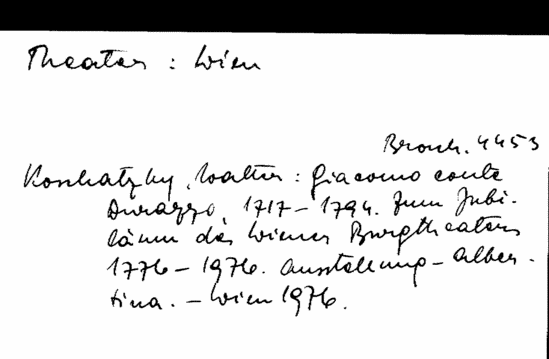 Theater : Wien
Brosch. 4453
Koschatzky, Walter : Giacomo conte
Durazzo, 1717 – 1794. Zum Jubi-
läum des Wiener Burgtheaters
1776 – 1976. Ausstellung – Alber-
tina. – Wien 1976.